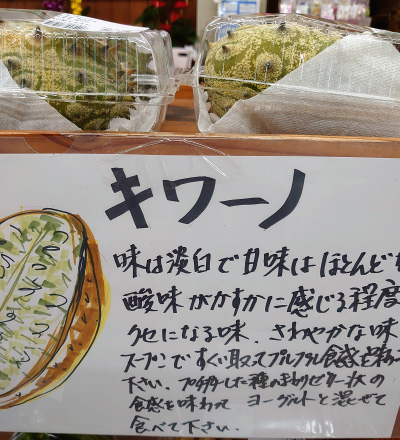 キワーノ
味は淡白で甘味はほとんど
酸味がかすかに感じる程度
クセになる味、さわやかな味
スプーンですくい取ってプルプル食感を
下さい。プチプチした種のまわりゼリー状の
食感を味わって ヨーグルトと混ぜて
食べて下さい。